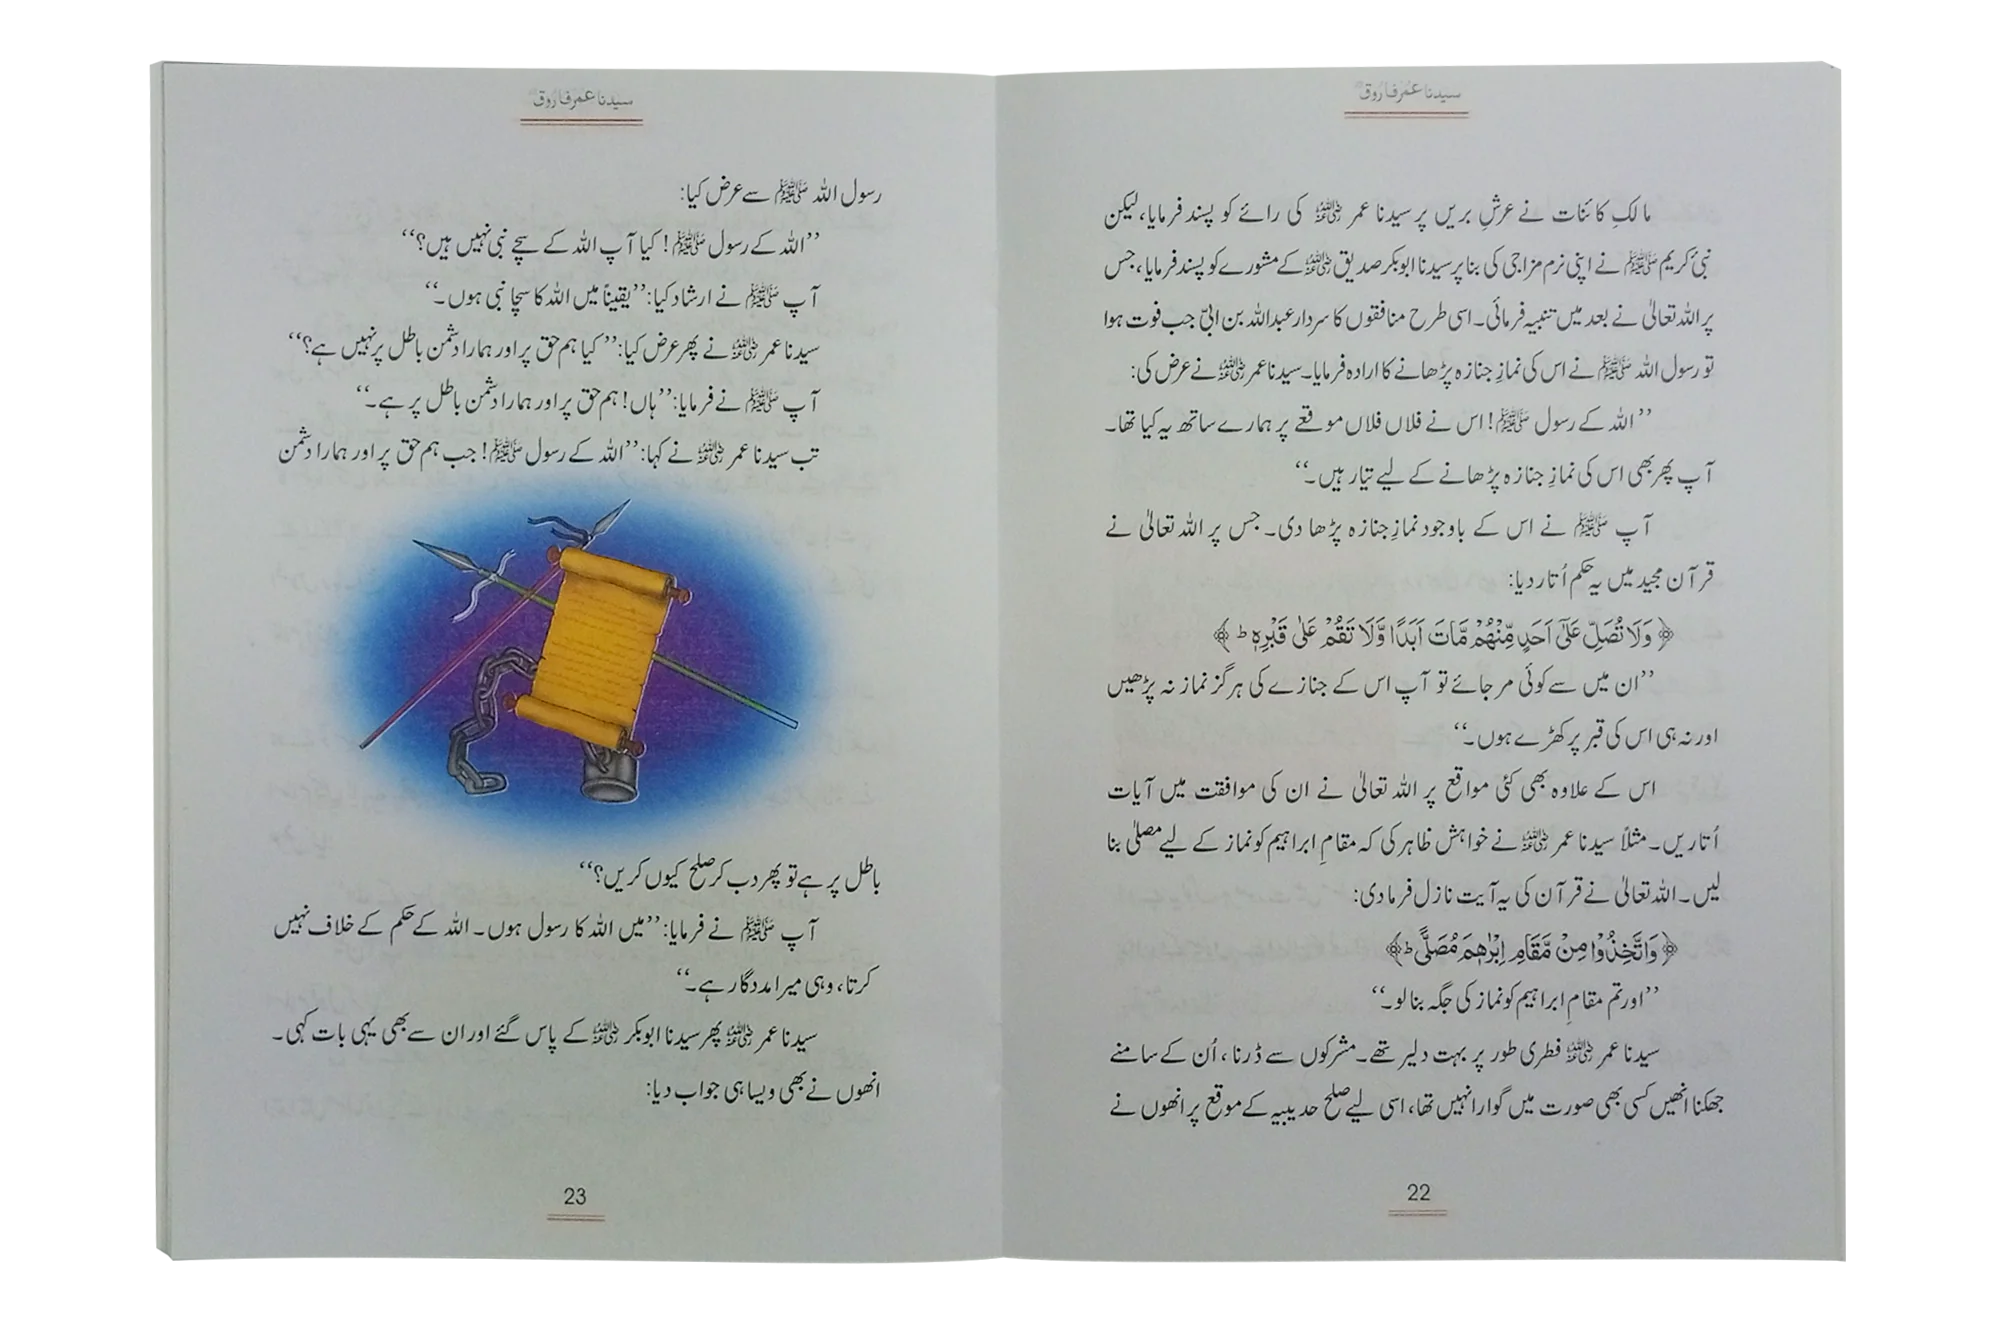 سیدنا عمر فاروق
مالکِ کائنات نے عرشِ بریں پر سیدنا عمر رضی اللہ عنہ کی رائے کو پسند فرمایا، لیکن
نبیٔ کریم ﷺ نے اپنی نرم مزاجی کی بنا پر سیدنا ابوبکر صدیق رضی اللہ عنہ کے مشورے کو پسند فرمایا، جس
پر اللہ تعالیٰ نے بعد میں تنبیہ فرمائی۔ اسی طرح منافقوں کا سردار عبداللہ بن ابیّ جب فوت ہوا
تو رسول اللہ ﷺ نے اس کی نمازِ جنازہ پڑھانے کا ارادہ فرمایا۔ سیدنا عمر رضی اللہ عنہ نے عرض کی:
’’اللہ کے رسول ﷺ! اس نے فلاں فلاں موقعے پر ہمارے ساتھ یہ کیا تھا۔
آپ پھر بھی اس کی نمازِ جنازہ پڑھانے کے لیے تیار ہیں۔‘‘
آپ ﷺ نے اس کے باوجود نمازِ جنازہ پڑھا دی۔ جس پر اللہ تعالیٰ نے
قرآن مجید میں یہ حکم اُتار دیا:
﴿وَلَا تُصَلِّ عَلٰٓى اَحَدٍ مِّنْهُمْ مَّاتَ اَبَدًا وَّلَا تَقُمْ عَلٰى قَبْرِهٖ ط﴾
’’ان میں سے کوئی مر جائے تو آپ اس کے جنازے کی ہرگز نماز نہ پڑھیں
اور نہ ہی اس کی قبر پر کھڑے ہوں۔‘‘
اس کے علاوہ بھی کئی مواقع پر اللہ تعالیٰ نے ان کی موافقت میں آیات
اُتاریں۔ مثلاً سیدنا عمر رضی اللہ عنہ نے خواہش ظاہر کی کہ مقامِ ابراہیم کو نماز کے لیے مصلیٰ بنا
لیں۔ اللہ تعالیٰ نے قرآن کی یہ آیت نازل فرما دی:
﴿وَاتَّخِذُوْا مِنْ مَّقَامِ اِبْرٰهٖمَ مُصَلًّى ط﴾
’’اور تم مقامِ ابراہیم کو نماز کی جگہ بنا لو۔‘‘
سیدنا عمر رضی اللہ عنہ فطری طور پر بہت دلیر تھے۔ مشرکوں سے ڈرنا، اُن کے سامنے
جھکنا انھیں کسی بھی صورت میں گوارا نہیں تھا، اسی لیے صلح حدیبیہ کے موقع پر انھوں نے
22
سیدنا عمر فاروق
رسول اللہ ﷺ سے عرض کیا:
’’اللہ کے رسول ﷺ! کیا آپ اللہ کے سچے نبی نہیں ہیں؟‘‘
آپ ﷺ نے ارشاد کیا: ’’یقیناً میں اللہ کا سچا نبی ہوں۔‘‘
سیدنا عمر رضی اللہ عنہ نے پھر عرض کیا: ’’کیا ہم حق پر اور ہمارا دشمن باطل پر نہیں ہے؟‘‘
آپ ﷺ نے فرمایا: ’’ہاں! ہم حق پر اور ہمارا دشمن باطل پر ہے۔‘‘
تب سیدنا عمر رضی اللہ عنہ نے کہا: ’’اللہ کے رسول ﷺ! جب ہم حق پر اور ہمارا دشمن
باطل پر ہے تو پھر دب کر صلح کیوں کریں؟‘‘
آپ ﷺ نے فرمایا: ’’میں اللہ کا رسول ہوں۔ اللہ کے حکم کے خلاف نہیں
کرتا، وہی میرا مددگار ہے۔‘‘
سیدنا عمر رضی اللہ عنہ پھر سیدنا ابوبکر رضی اللہ عنہ کے پاس گئے اور ان سے بھی یہی بات کہی۔
انھوں نے بھی ویسا ہی جواب دیا:
23